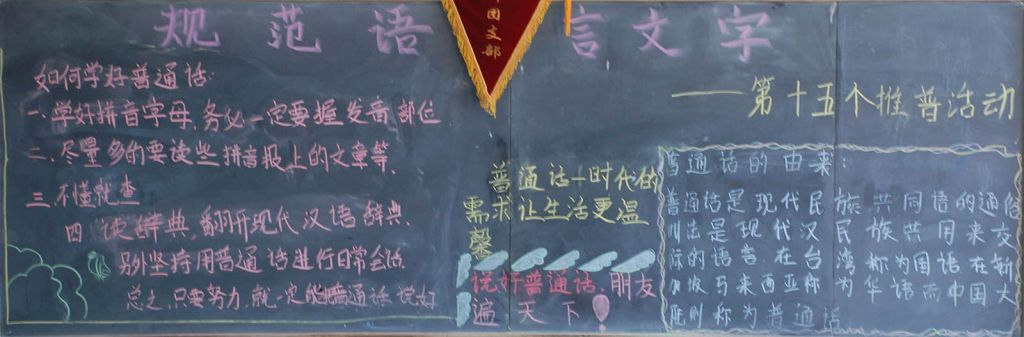 规范语言文字
团支部
——第十五个推普活动
如何学好普通话:
一、学好拼音字母，务必一定要握发音部位
二、尽量多的要读些拼音报上的文章等、
三、不懂就查
四、读辞典，翻开现代汉语辞典
另外坚持用普通话进行日常会话
总之，只要努力，就一定能普通话说好
普通话—时代的
需求让生活更温
馨
说好普通话，朋友
遍天下！
普通话的由来：
普通话是现代民族共同语的通俗
叫法是现代汉民族共用来交
际的语言.在台湾称为国语在新
加坡马来西亚称为华语而中国大
陆则称为普通话